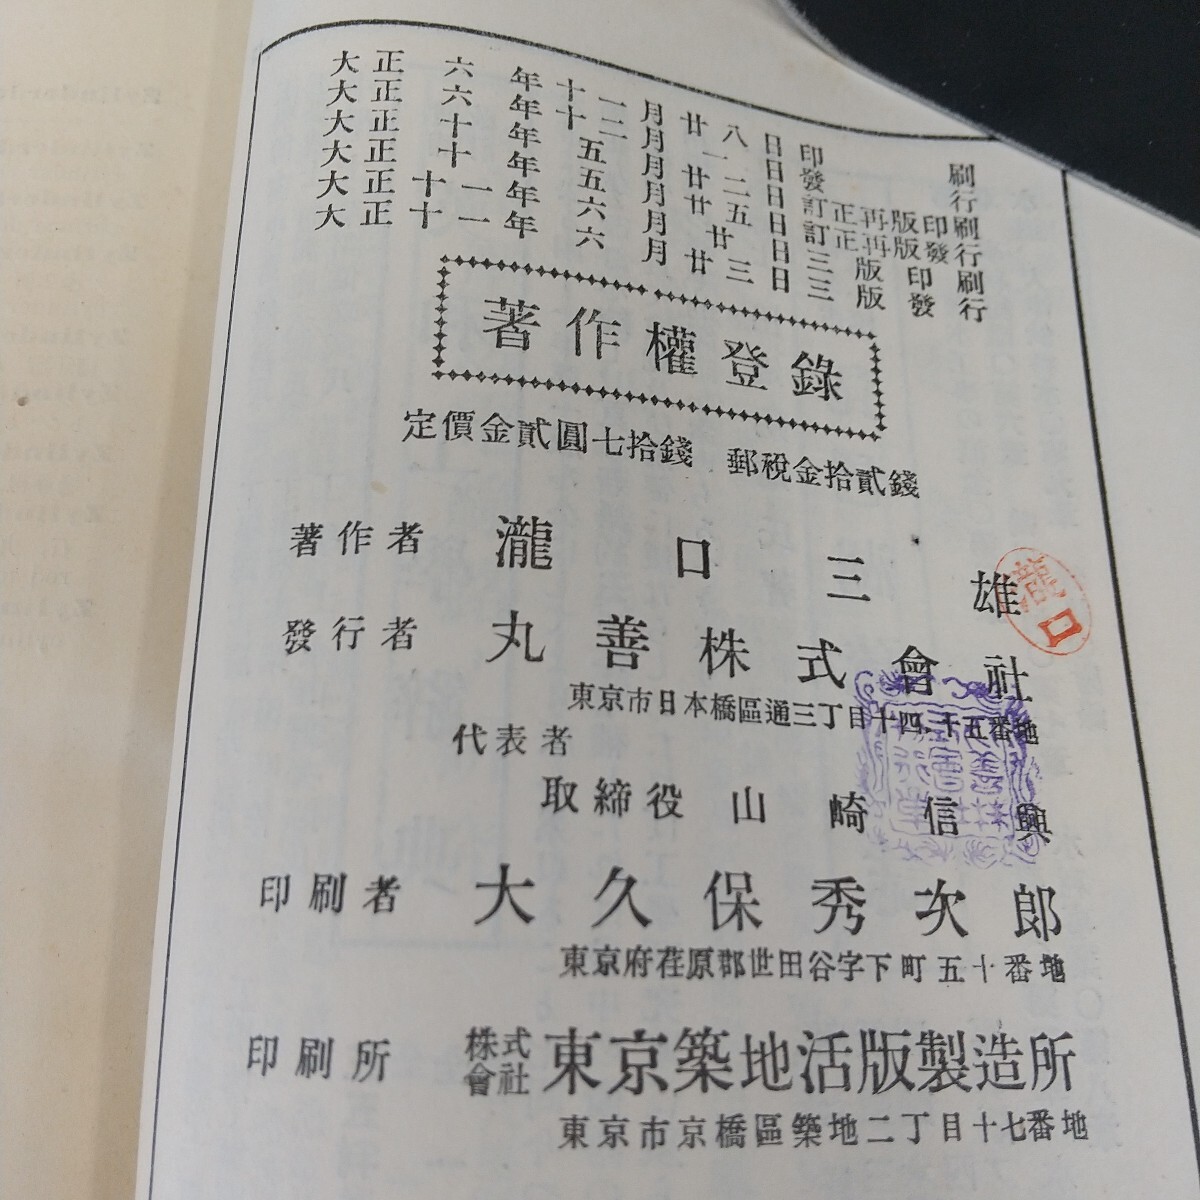 大正六年十一月廿八日印刷
大正六年十二月一日發行
大正十年五月廿二日訂正再版印刷
大正十年五月廿五日訂正再版發行
大正十一年六月廿日三版印刷
大正十一年六月廿三日三版發行
著作權登錄
定價金貳圓七拾錢 郵稅金拾貳錢
著作者 瀧口三雄
瀧口
發行者 丸善株式會社
東京市日本橋區通三丁目十四、十五番地
代表者
取締役 山崎信興
印刷者 大久保秀次郎
東京府荏原郡世田谷字下町五十番地
印刷所 株式會社 東京築地活版製造所
東京市京橋區築地二丁目十七番地